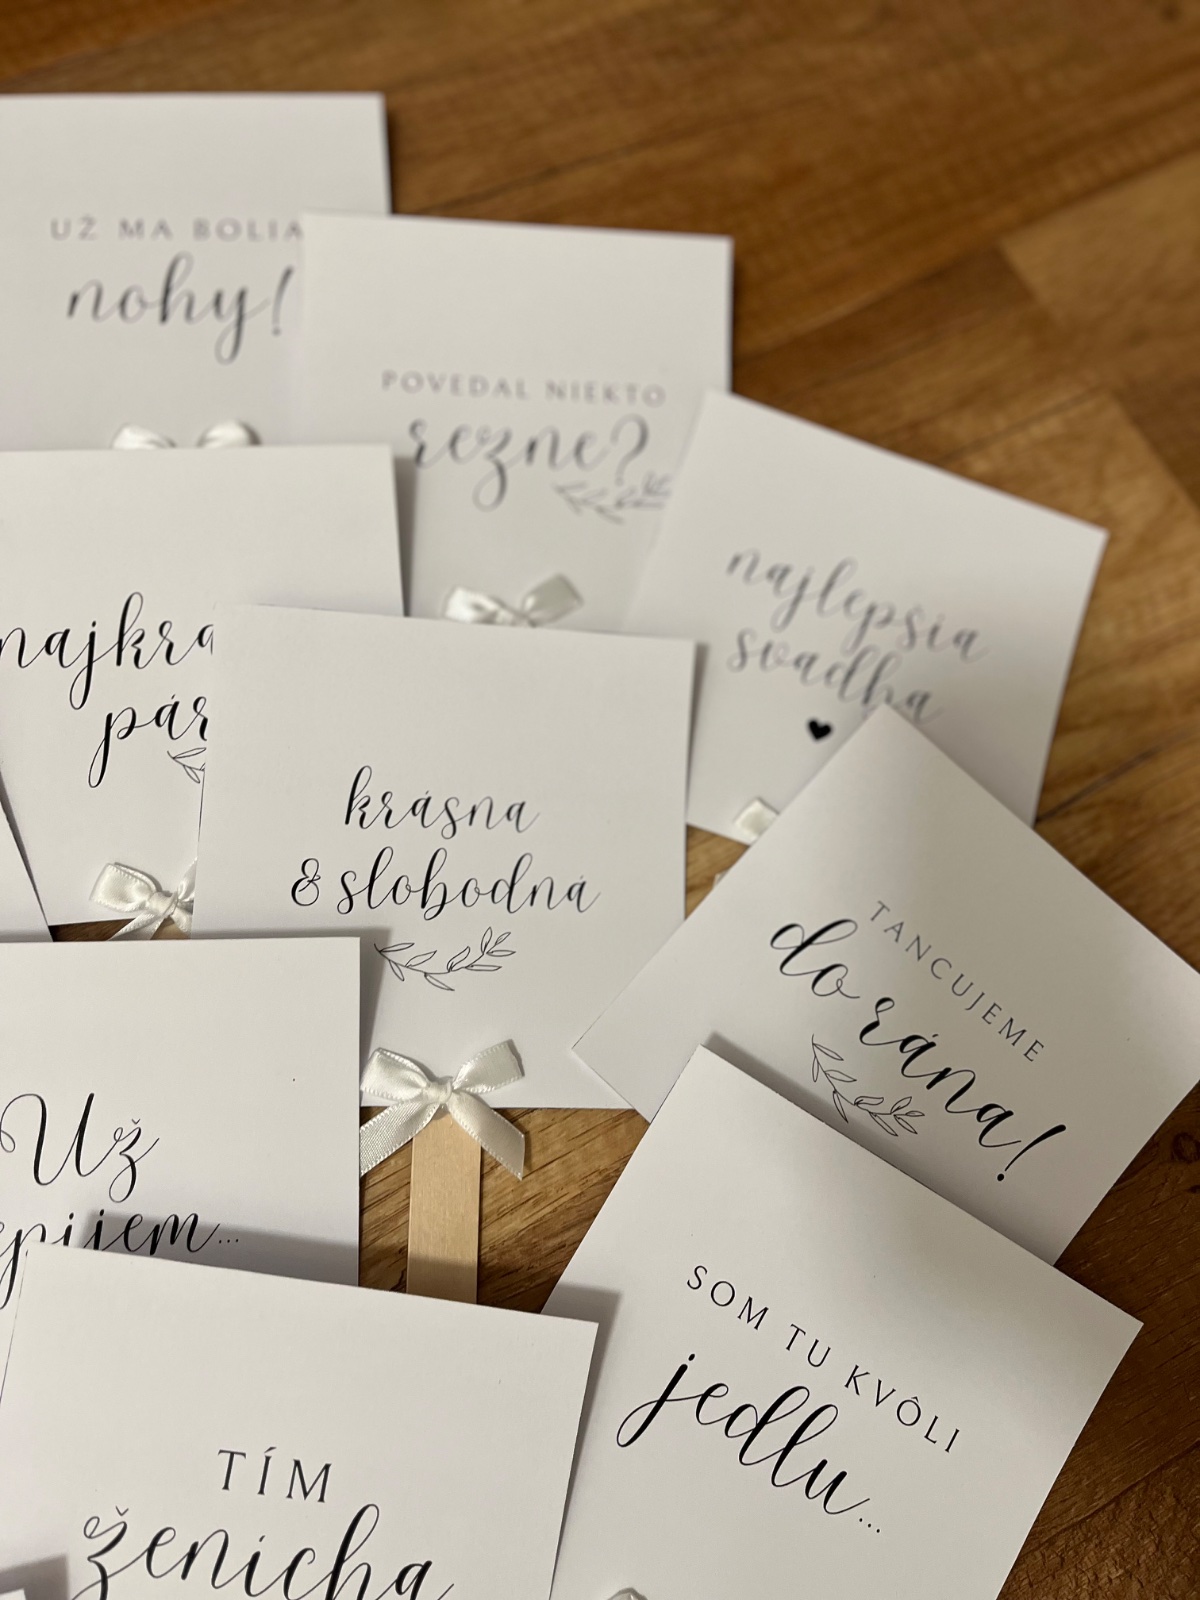 UŽ MA BOLIA
nohy!
POVEDAL NIEKTO
rezne?
najlepšia
svadba
najkra
pár
krásna
& slobodná
TANCUJEME
do rána!
Už
pijem...
SOM TU KVÔLI
jedlu...
TÍM
ženícha